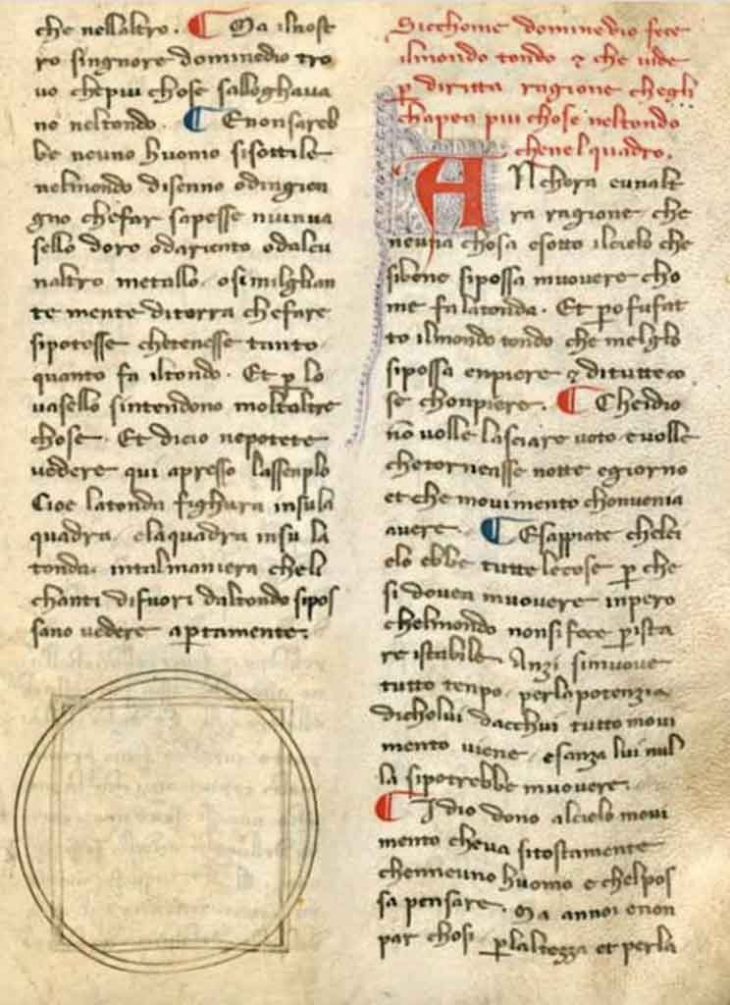 che nell altro. Ma il nost
ro singnore domineddio tro
vo che piu chose sallogháva
no nel tondo. E non sareb
be neuno huomo si sottile
nel mondo di senno o dingien
gno che far sapesse niunva
sello doro o dariento o dalcu
naltro metallo. o similglian
te mente di terra che fare
si potesse che tenesse tanto
quanto fa il tondo. Et p lo
vasello sintendono moltaltre
chose. Et di cio ne potete
vedere qui apresso lassenplo
Cioe la tonda fighura insula
quadra. e la quadra insu la
tonda. in tal maniera che li
chanti di fuori dal tondo si pos
sano vedere aptamente.
Sicchome domineddio fece
il mondo tondo & che vide
p diritta ragione chegli
chapea piu chose nel tondo
che nel quadro.
ANchora e unalt
ra ragione che
neuna chosa e sotto il cielo che
si bene si possa muovere cho
me fa la tonda. Et po fu fat
to il mondo tondo che melglo
si possa enpiere & di tutte co
se chonpiere. Che idio
no volle lasciare voto. e volle
che torneasse notte e giorno
et che movimento chonvenia
avere. E sappiate che lci
elo ebbe tutte le cose p che
si dovea muovere inpero
chel mondo non si fece p ista
re istabile. Anzi si muove
tutto tenpo. per la potenzia
di cholui dacchui tutto movi
mento viene. e sanza lui nul
la si potrebbe muovere.
Idio dono al cielo movi
mento che va si tostamente
che nneuno huomo e chel pos
sa pensare. Ma annoi e non
par chosi. p laltezza et per la